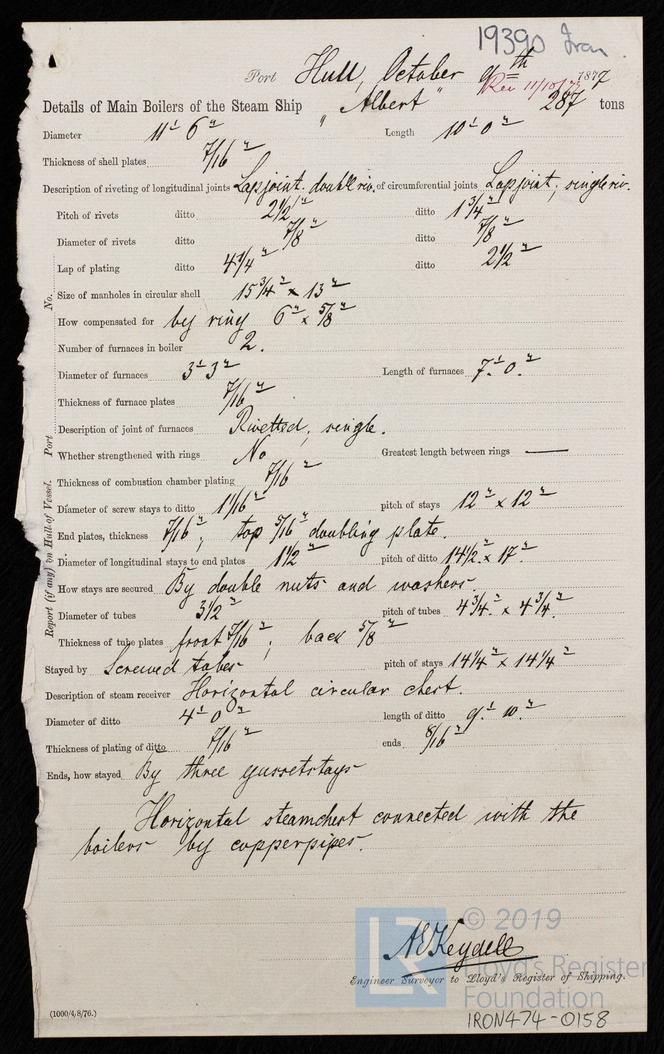 19390 Iron
Port Hull, October 9th 1877
Rec 11/10/77
Details of Main Boilers of the Steam Ship "Albert" 287 tons
Diameter 11' 6" Length 10' 0"
Thickness of shell plates 7/16"
Description of riveting of longitudinal joints Lapjoint. double riv. of circumferential joints Lapjoint, single riv.
Pitch of rivets ditto 2 1/2" ditto 1 3/4"
Diameter of rivets ditto 7/8" ditto 7/8"
Lap of plating ditto 4 1/4" ditto 2 1/2"
Size of manholes in circular shell 15 3/4" x 13"
How compensated for by ring 6" x 5/8"
Number of furnaces in boiler 2.
Diameter of furnaces 3' 3" Length of furnaces 7' 0"
Thickness of furnace plates 7/16"
Description of joint of furnaces Rivetted, single.
Whether strengthened with rings No Greatest length between rings —
Thickness of combustion chamber plating 7/16"
Diameter of screw stays to ditto 1 1/16" pitch of stays 12" x 12"
End plates, thickness 7/16"; top 5/16" doubling plate.
Diameter of longitudinal stays to end plates 1 1/2" pitch of ditto 14 1/2" x 17"
How stays are secured By double nuts and washers.
Diameter of tubes 3 1/2" pitch of tubes 4 3/4" x 4 3/4"
Thickness of tube plates front 7/16"; back 5/8"
Stayed by Screwed tubes pitch of stays 14 1/4" x 14 1/4"
Description of steam receiver Horizontal circular chest.
Diameter of ditto 4' 0" length of ditto 9' 10"
Thickness of plating of ditto 7/16" ends 8/16"
Ends, how stayed By three gussetstays
Horizontal steamchest connected with the
boilers by copperpipes.
No.
Port
Report (if any) on Hull of Vessel.
A E Keydell
Engineer Surveyor to Lloyd's Register of Shipping.
(1000/4/8/76.)
LR
© 2019
Lloyd's Register
Foundation
IRON474-0158